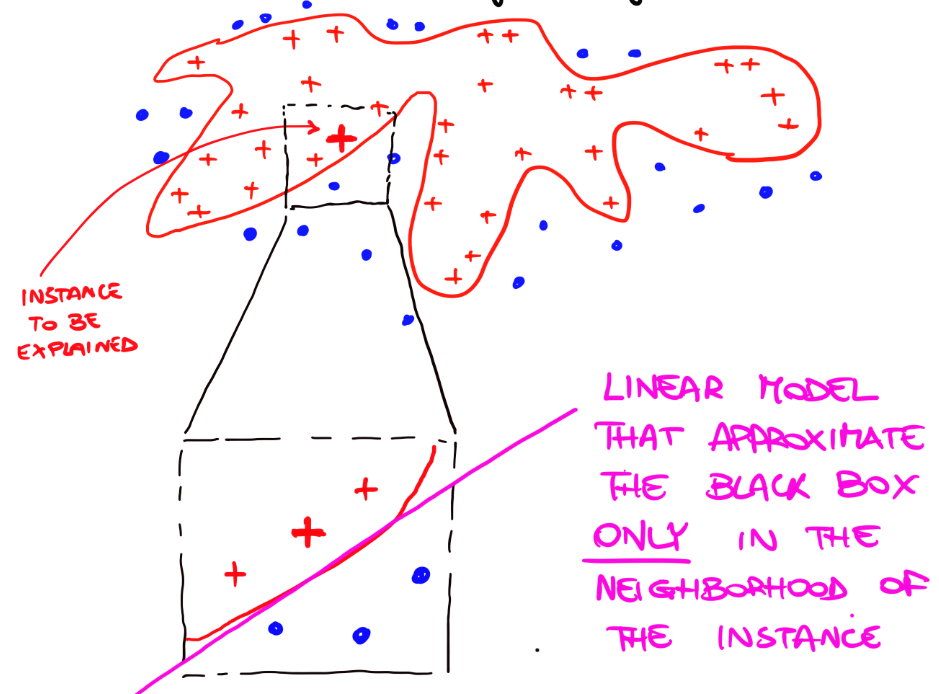 INSTANCE
TO BE
EXPLAINED
LINEAR MODEL
THAT APPROXIMATE
THE BLACK BOX
ONLY IN THE
NEIGHBORHOOD OF
THE INSTANCE